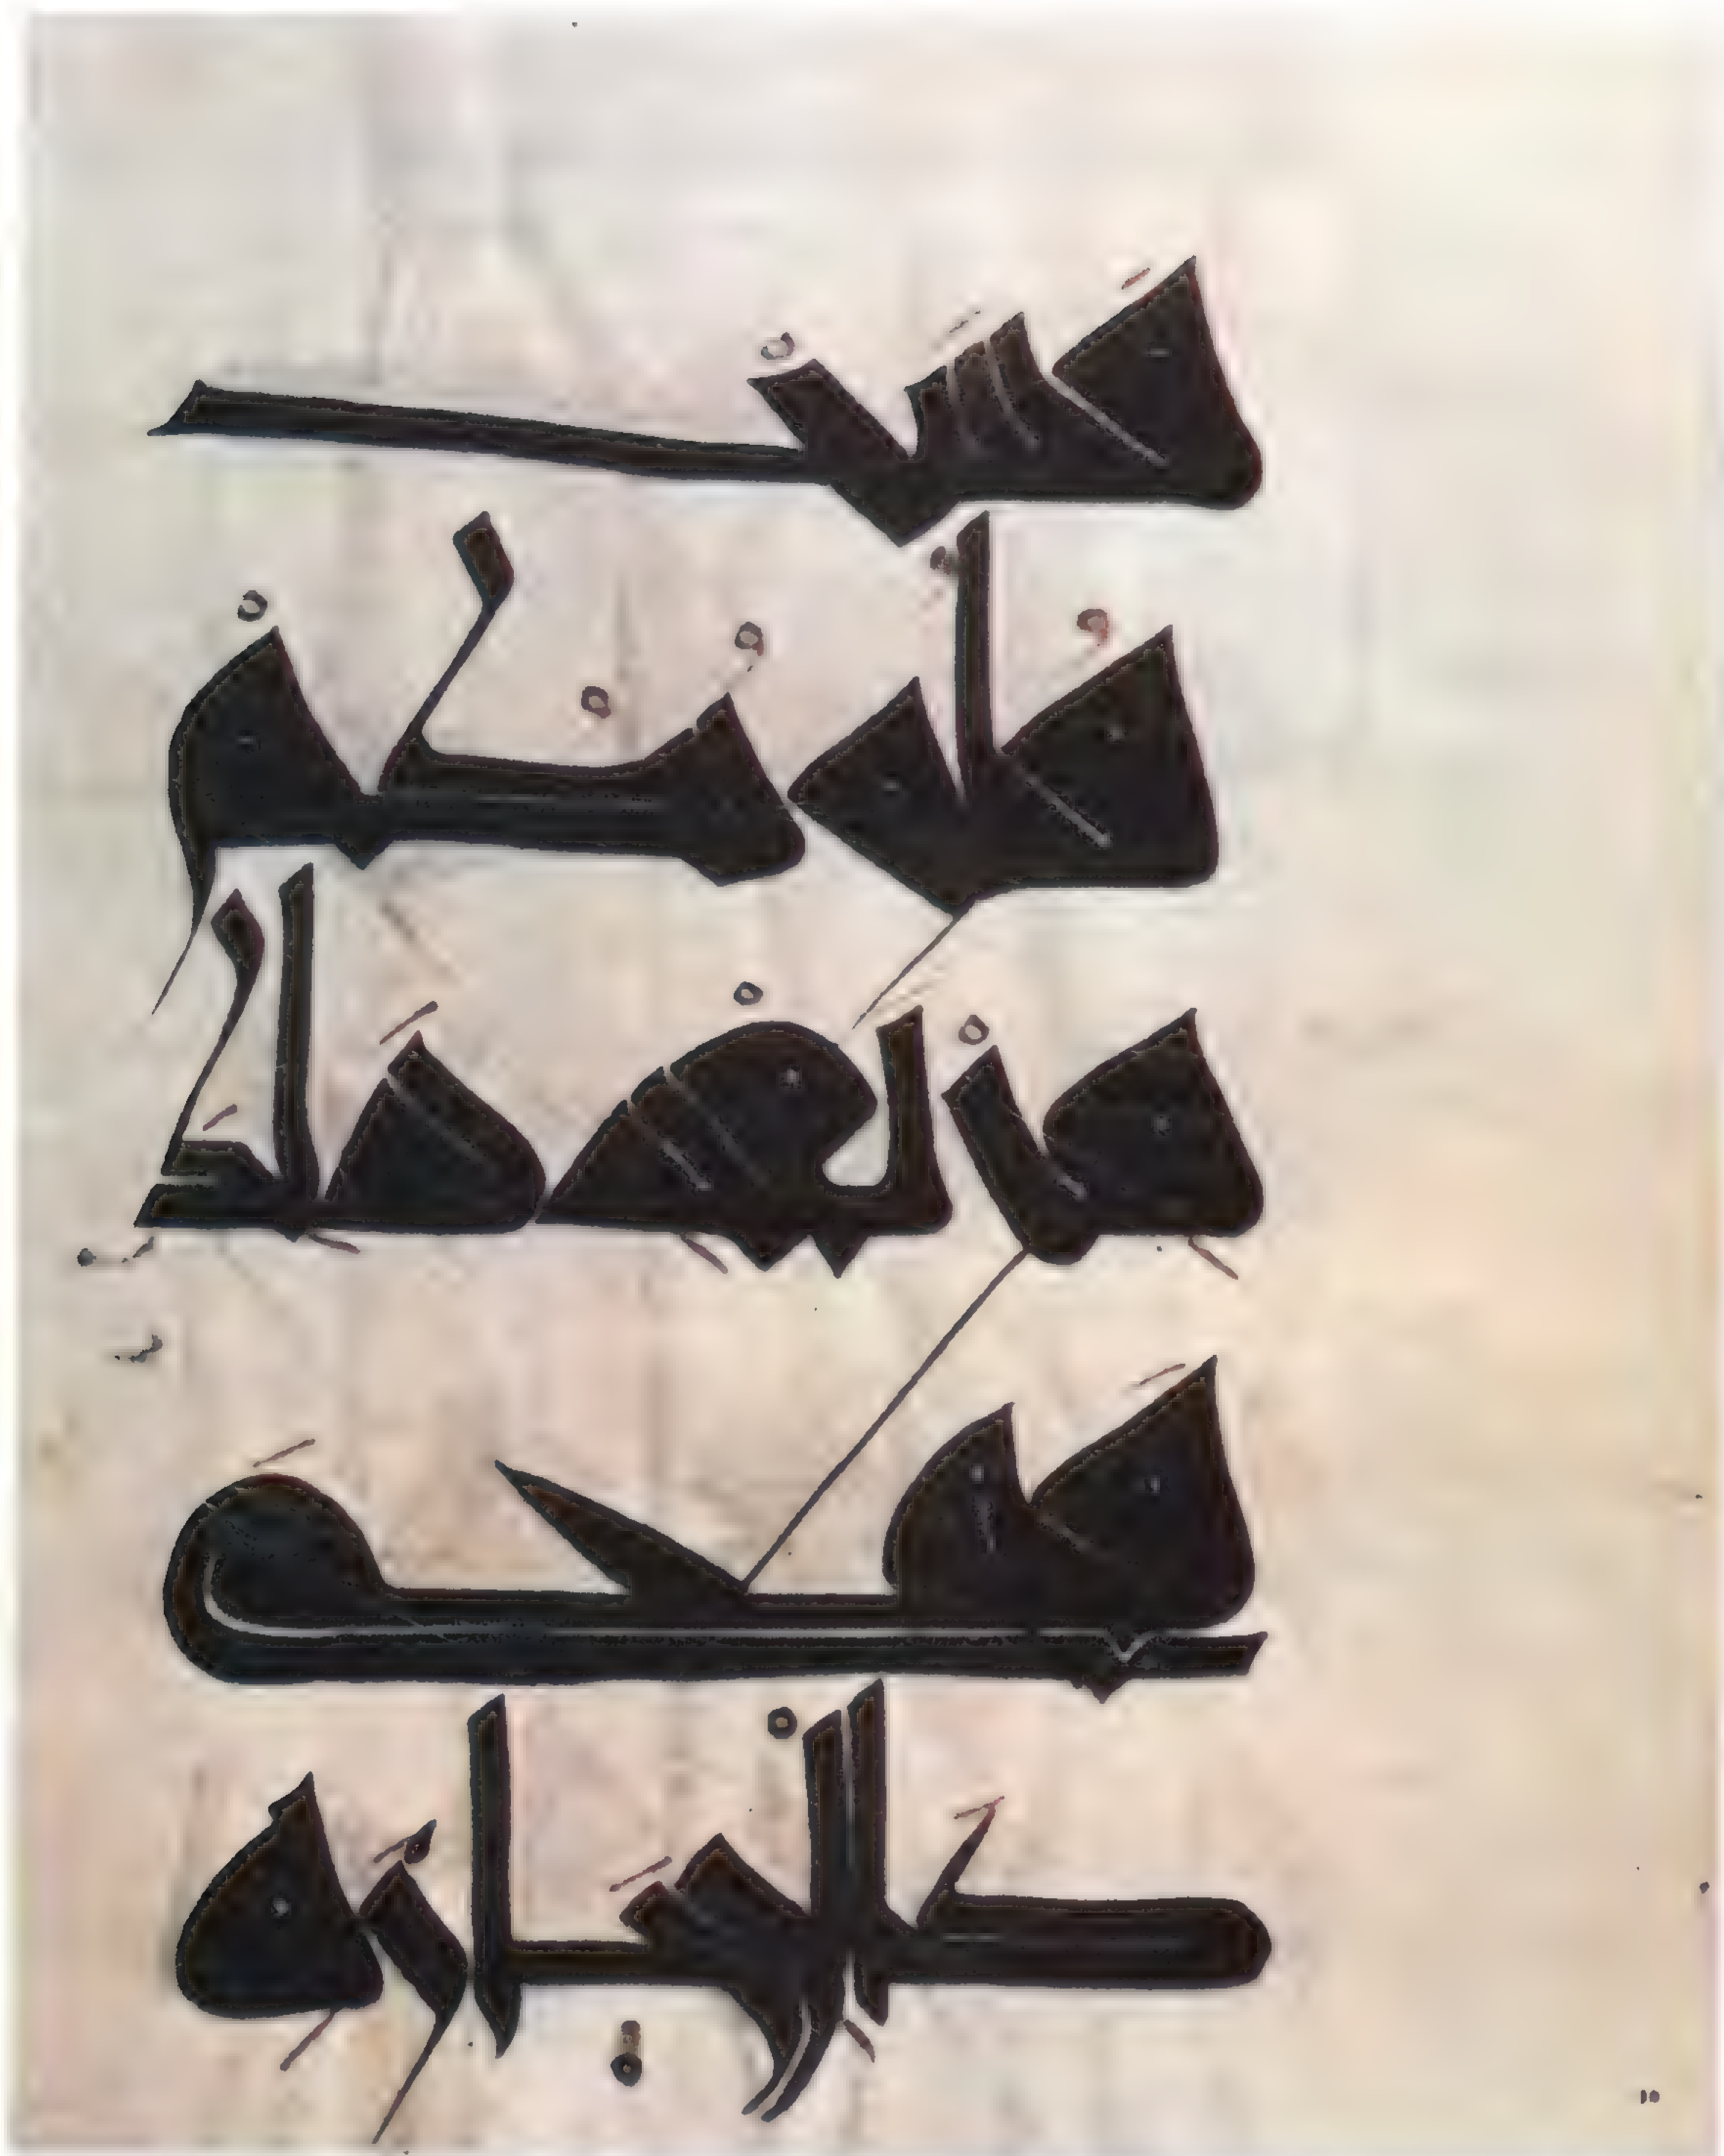 قست
قلوبكم
من بعد ذلك
فهى
كالحجارة